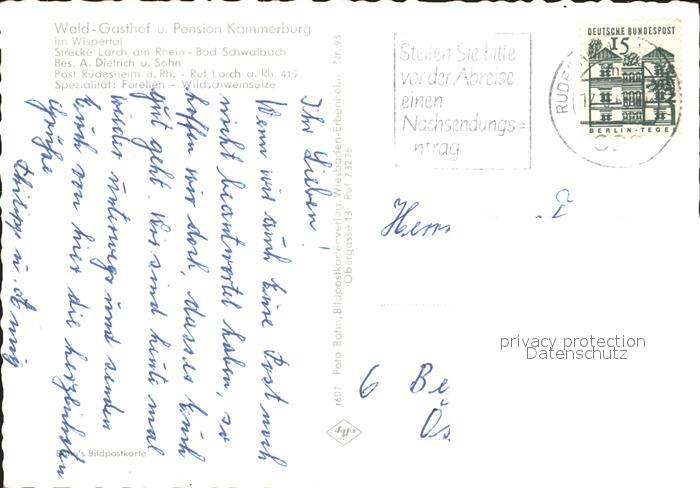 Wald-Gasthof u. Pension Kammerburg
im Wispertal
Strecke Lorch am Rhein - Bad Schwalbach
Bes. A. Dietrich u. Sohn
Post Rüdesheim a. Rh. - Ruf Lorch a. Rh. 415
Spezialität: Forellen - Wildschweinsülze
Ihr Lieben!
Wenn wir auch keine Post noch
nicht beantwortet haben, so
hoffen wir doch, dass es Euch
gut geht. Wir sind heute mal
wieder unterwegs und senden
Euch von hier die herzlichsten
Grüße
Philipp u. Anny
Bahn's Bildpostkarte
r607 Foto Bahn, Bildpostkartenverlag, Wiesbaden-Erbenheim Nr. 95
Obergasse 13 Ruf 73275
Stellen Sie bitte
vor der Abreise
einen
Nachsendungs=
ntrag
RÜDE
17
DEUTSCHE BUNDESPOST
15
BERLIN-TEGE
Herr
6 Be
Ös
privacy protection
Datenschutz